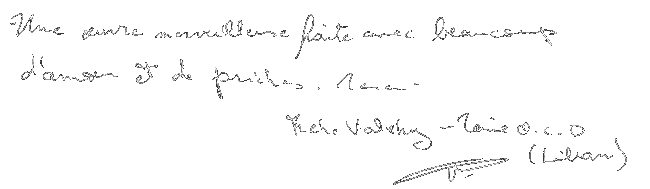 Une œuvre merveilleuse faite avec beaucoup
d'amour et de prières. Merci.
Marie O.C.D
(Liban)